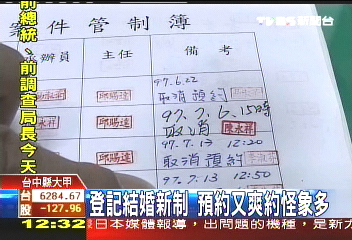 TVBS新聞台
前總統、前調查局長今天
案件管制簿
承辦員 主任 備考
97.6.22
取消預約
邱賜達
97.7.6.15時
取消
邱賜達
97.7.13 12:20
取消預約
邱賜達
97.7.13 12:50
台中縣大甲
台股 6284.67
-127.96
登記結婚新制 預約又爽約怪象多
12:32 日本媒體報導，出問題的機種，是新力